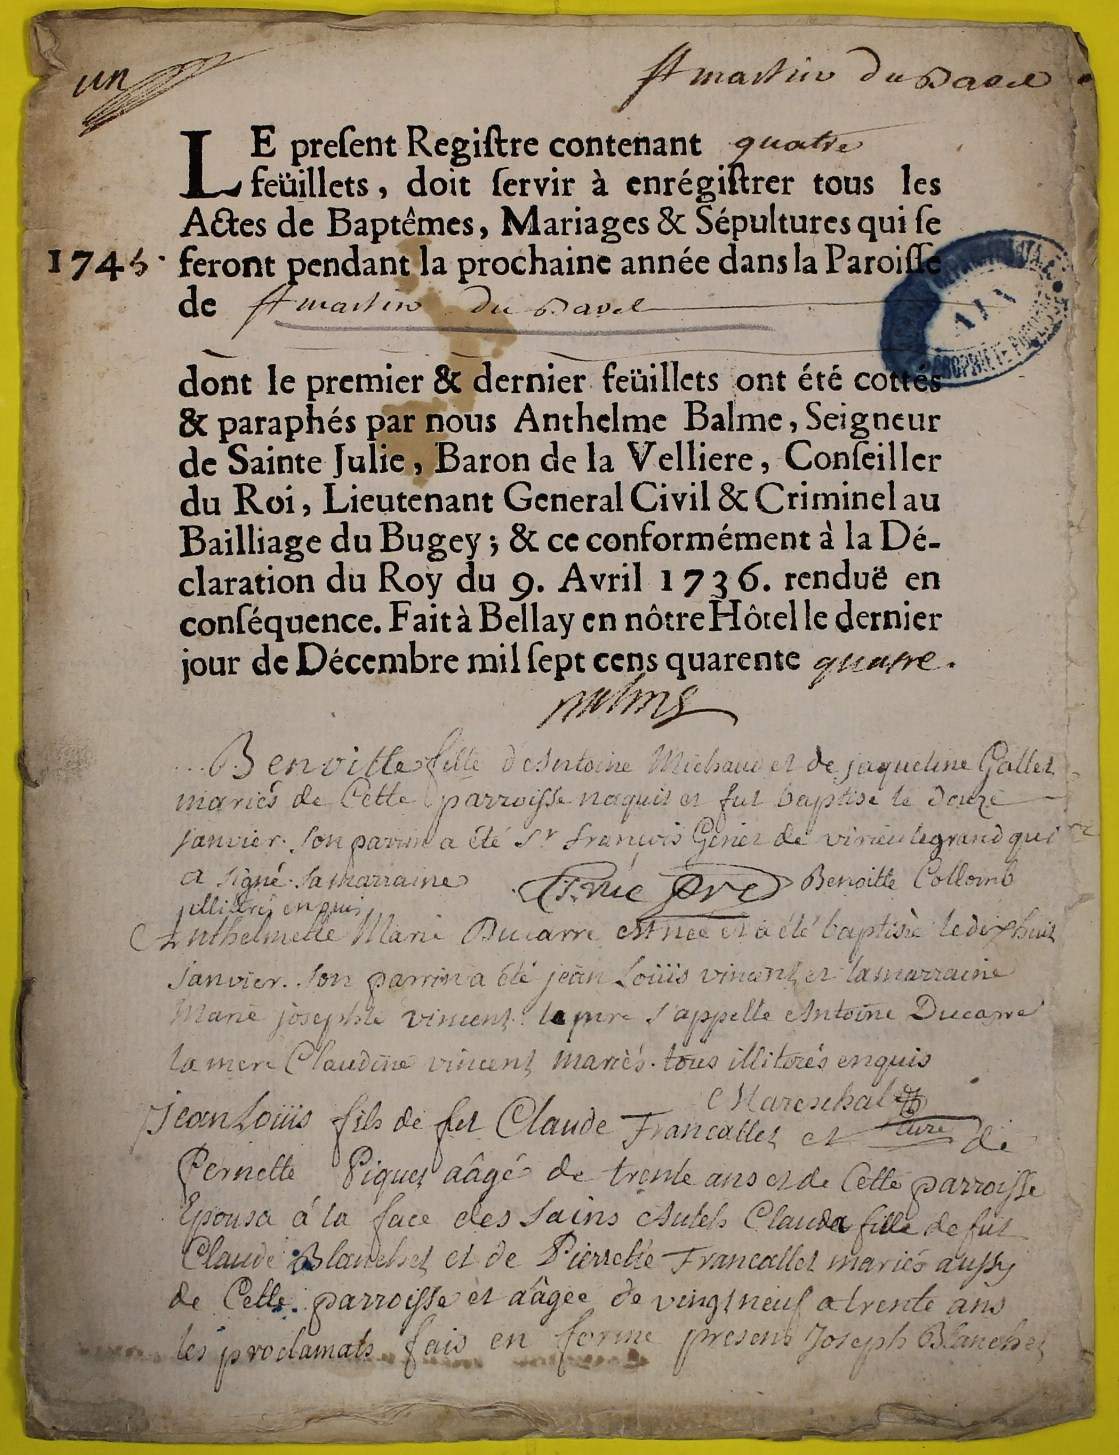 un
st martin du Pavel
LE preſent Regiſtre contenant quatre
feüillets, doit ſervir à enrégiſtrer tous les
Actes de Baptêmes, Mariages & Sépultures qui ſe
1745. feront pendant la prochaine année dans la Paroiſſe
de st martin du Pavel
dont le premier & dernier feüillets ont été cottés
& paraphés par nous Anthelme Balme, Seigneur
de Sainte Julie, Baron de la Velliere, Conſeiller
du Roi, Lieutenant General Civil & Criminel au
Bailliage du Bugey ; & ce conformément à la Dé-
claration du Roy du 9. Avril 1736. renduë en
conſéquence. Fait à Bellay en nôtre Hôtel le dernier
jour de Décembre mil ſept cens quarente quatre.
Balme
Benoitte fille d'Antoine Michaud et de jaqueline Gallet
mariés de Cette parroisse naquit et fut baptisé le douze
janvier. son parrin a été Sr françois Genet de virieu legrand qui
a signé. sa marraine Benoitte Collomb
illiteré enquis
Anthelmette Marie Ducarre est née et a été baptisée le dix huit
janvier. son parrin a été jean Loüis vincent et la marraine
Marie josephte vincent. le pere s'appelle Antoine Ducarre
la mere Claudine vincent mariés. tous illiterés enquis
Mareschal
curé
Jean Loüis fils de fut Claude Francallet et de
Pernette Piquet aâgé de trente ans et de Cette parroisse
Epousa á la face des sains Autels Clauda fille de fut
Claude Blanchet et de Pierrette Francallet mariés aussy
de Cette parroisse et aâgée de vingt neuf a trente ans
les proclamats fais en forme presens Joseph Blanchet